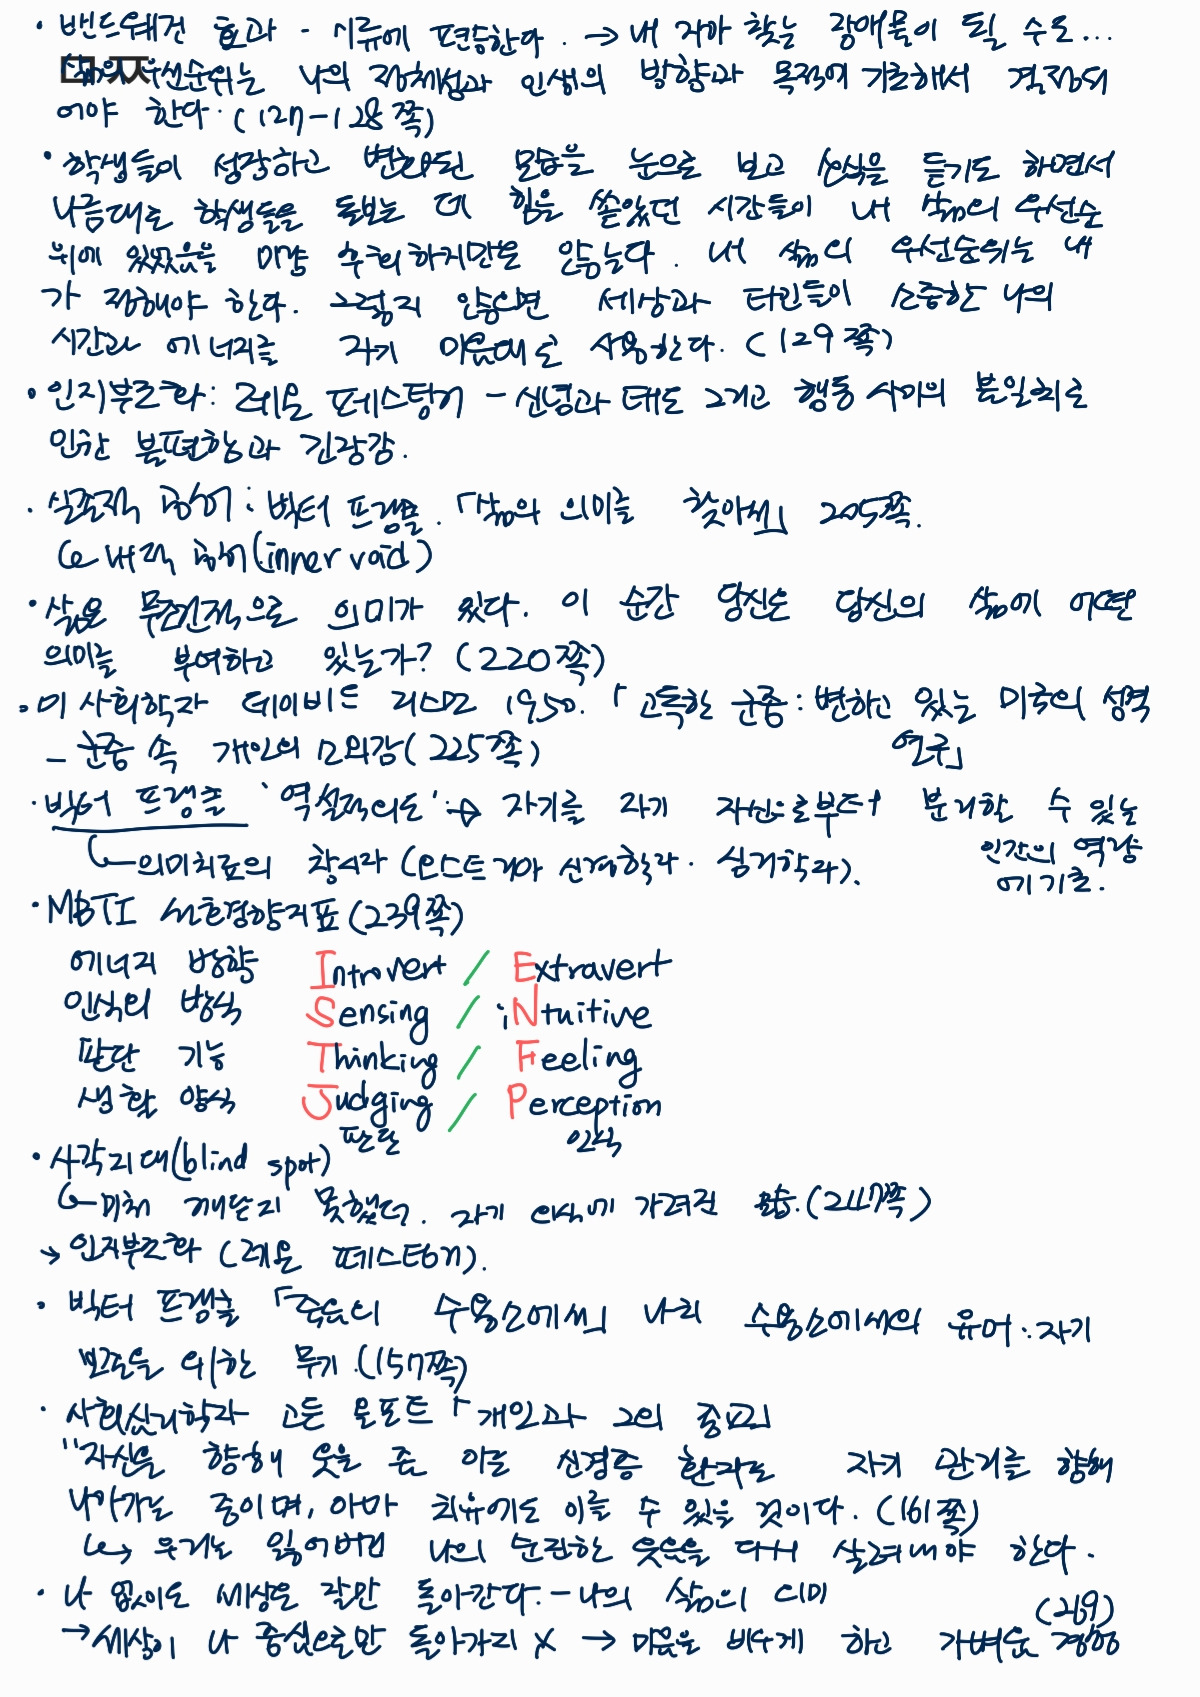 · 밴드왜건 효과 - 시류에 편승한다. → 내 자아 찾는 장애물이 될 수도...
삶의 우선순위는 나의 정체성과 인생의 방향과 목적에 기초해서 결정되
어야 한다. (127-128쪽)
· 학생들이 성장하고 변화된 모습을 눈으로 보고 소식을 듣기도 하면서
나름대로 학생들을 돌보는 데 힘을 쏟았던 시간들이 내 삶의 우선순
위에 있었음을 마냥 후회하지만은 않는다. 내 삶의 우선순위는 내
가 정해야 한다. 그렇지 않으면 세상과 타인들이 소중한 나의
시간과 에너지를 자기 마음대로 사용한다. (129쪽)
· 인지부조화: 레온 페스팅거 - 신념과 태도 그리고 행동 사이의 불일치로
인한 불편함과 긴장감.
· 실존적 공허: 빅터 프랭클. 「삶의 의미를 찾아서」 205쪽.
내적 공허(inner void)
· 삶은 무조건적으로 의미가 있다. 이 순간 당신은 당신의 삶에 어떤
의미를 부여하고 있는가? (220쪽)
· 미 사회학자 데이비드 리스먼 1950. 「고독한 군중: 변하고 있는 미국의 성격
연구」
- 군중 속 개인의 소외감(225쪽)
· 빅터 프랭클 '역설적의도' → 자기를 자기 자신으로부터 분리할 수 있는
인간의 역량
에 기초.
의미치료의 창시자 (오스트리아 신경학자·심리학자).
· MBTI 선호경향지표(239쪽)
에너지 방향 Introvert / Extravert
인식의 방식 Sensing / iNtuitive
판단 기능 Thinking / Feeling
생활 양식 Judging / Perception
판단 인식
· 사각지대(blind spot)
미처 깨닫지 못했던. 자기 인식에 가려진 모습. (247쪽)
→ 인지부조화 (레온 페스팅거).
· 빅터 프랭클 「죽음의 수용소에서」 나치 수용소에서의 유머: 자기
보존을 위한 무기. (157쪽)
· 사회심리학자 고든 올포트 「개인과 그의 종교」
"자신을 향해 웃을 줄 아는 신경증 환자는 자기 관리를 향해
나아가는 중이며, 아마 치유에도 이를 수 있을 것이다. (161쪽)
↳ 우리는 잃어버린 나의 순진한 웃음을 다시 살려내야 한다.
· 나 없이도 세상은 잘만 돌아간다. - 나의 삶의 의미
(269)
→ 세상이 나 중심으로만 돌아가지 X → 마음을 비우게 하고 가벼운 경험